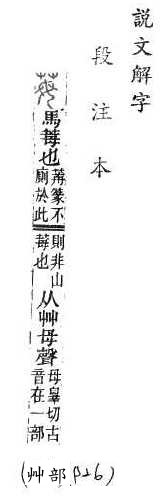 說文解字
段注本
苺 馬苺也葥篆不廁於此則非山苺也从艸母聲母辠切古音在一部
(艸部 P26)